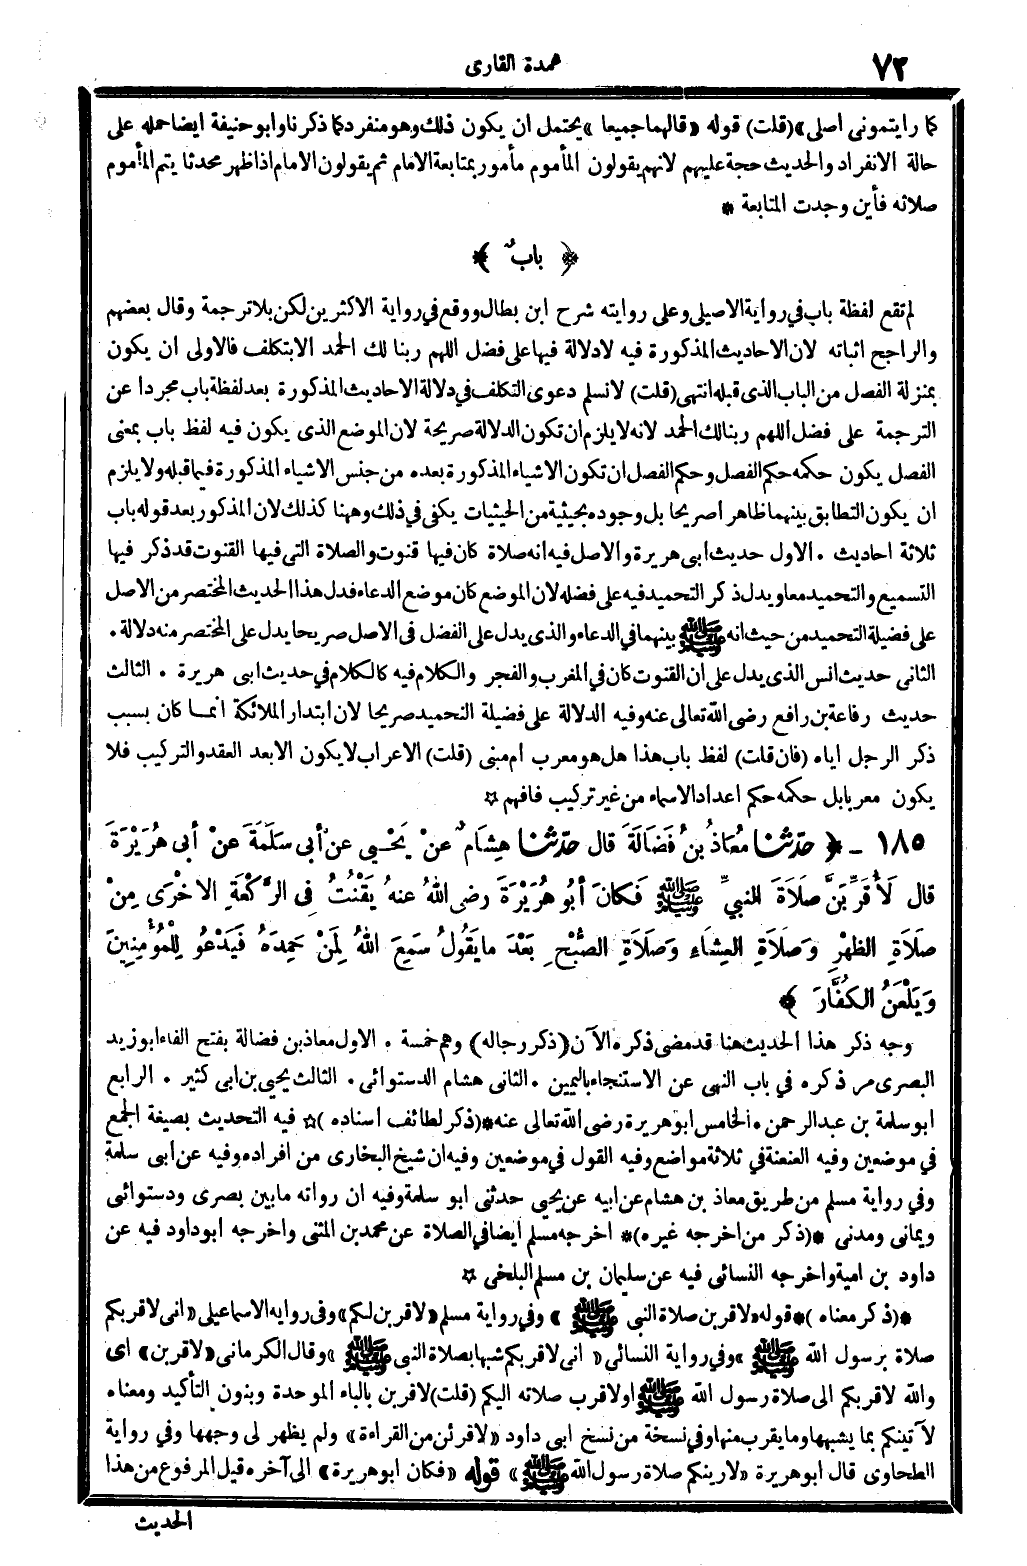 ٧٢
عمدة القارى
كما رايتمونى اصلى» (قلت) قوله «قالهما جميعا» يحتمل ان يكون ذلك وهو منفرد كما ذكرنا وابو حنيفة ايضا حمله على
حالة الانفراد والحديث حجة عليهم لانهم يقولون المأموم مأمور بمتابعة الامام ثم يقولون الامام اذا ظهر محدثا يتم المأموم
صلاته فأين وجدت المتابعة *
﴿ بابٌ ﴾
لم تقع لفظة باب في رواية الاصيلى وعلى روايته شرح ابن بطال ووقع في رواية الاكثرين لكن بلا ترجمة وقال بعضهم
والراجح اثباته لان الاحاديث المذكورة فيه لا دلالة فيها على فضل اللهم ربنا لك الحمد الا بتكلف فالاولى ان يكون
بمنزلة الفصل من الباب الذى قبله انتهى (قلت) لا نسلم دعوى التكلف في دلالة الاحاديث المذكورة بعد لفظة باب مجردا عن
الترجمة على فضل اللهم ربنا لك الحمد لانه لا يلزم ان تكون الدلالة صريحة لان الموضع الذى يكون فيه لفظ باب بمعنى
الفصل يكون حكمه حكم الفصل وحكم الفصل ان تكون الاشياء المذكورة بعده من جنس الاشياء المذكورة فيما قبله ولا يلزم
ان يكون التطابق بينهما ظاهرا صريحا بل وجوده بحيثية من الحيثيات يكفى في ذلك وههنا كذلك لان المذكور بعد قوله باب
ثلاثة احاديث . الاول حديث ابى هريرة والاصل فيه انه صلاة كان فيها قنوت والصلاة التى فيها القنوت قد ذكر فيها
التسميع والتحميد معا ويدل ذكر التحميد فيه على فضله لان الموضع كان موضع الدعاء فدل هذا الحديث المختصر من الاصل
على فضيلة التحميد من حيث انه ﷺ بينهما في الدعاء والذى يدل على الفضل فى الاصل صريحا يدل على المختصر منه دلالة .
الثانى حديث انس الذى يدل على ان القنوت كان في المغرب والفجر والكلام فيه كالكلام في حديث ابى هريرة . الثالث
حديث رفاعة بن رافع رضى الله تعالى عنه وفيه الدلالة على فضيلة التحميد صريحا لان ابتدار الملائكة انما كان بسبب
ذكر الرجل اياه (فان قلت) لفظ باب هذا هل هو معرب ام مبنى (قلت) الاعراب لا يكون الا بعد العقد والتركيب فلا
يكون معربا بل حكمه حكم اعداد الاسماء من غير تركيب فافهم ☆
١٨٥ ـ ﴿ حدّثنا مُعَاذُ بنُ فَضَالَةَ قال حدّثنا هِشَامٌ عنْ يَحْيى عنْ أبى سَلَمَةَ عنْ أبى هُرَيْرَةَ
قال لَأُقَرِّبَنَّ صَلَاةَ النبيِّ ﷺ فَكانَ أبُو هُرَيْرَةَ رضى اللهُ عنهُ يَقْنُتُ فِى الرَّكْعَةِ الاخْرَى مِنْ
صَلَاةِ الظهْرِ وَصَلَاةِ العِشَاءِ وَصَلَاةِ الصُّبْحِ بَعْدَ ما يَقُولُ سَمِعَ اللهُ لِمَنْ حَمِدَهُ فَيَدْعُو لِلْمُؤْمِنِينَ
وَيَلْعَنُ الكُفَّارَ ﴾
وجه ذكر هذا الحديث هنا قد مضى ذكره الآن (ذكر رجاله) وهم خمسة . الاول معاذ بن فضالة بفتح الفاء ابو زيد
البصرى مر ذكره في باب النهى عن الاستنجاء باليمين . الثانى هشام الدستوائى . الثالث يحيى بن ابى كثير . الرابع
ابو سلمة بن عبد الرحمن . الخامس ابو هريرة رضى الله تعالى عنه *(ذكر لطائف اسناده)☆ فيه التحديث بصيغة الجمع
في موضعين وفيه العنعنة في ثلاثة مواضع وفيه القول في موضعين وفيه ان شيخ البخارى من افراده وفيه عن أبى سلمة
وفي رواية مسلم من طريق معاذ بن هشام عن ابيه عن يحيى حدثنى ابو سلمة وفيه ان رواته ما بين بصرى ودستوائى
ويمانى ومدنى *(ذكر من اخرجه غيره)* اخرجه مسلم ايضا في الصلاة عن محمد بن المثنى واخرجه ابو داود فيه عن
داود بن امية واخرجه النسائى فيه عن سليمان بن مسلم البلخى ☆
*(ذكر معناه)* قوله «لاقربن صلاة النبى ﷺ» وفي رواية مسلم «لاقربن لكم» وفى روايه الاسماعيلى «انى لاقربكم
صلاة برسول الله ﷺ» وفي رواية النسائى «انى لاقربكم شبها بصلاة النبى ﷺ» وقال الكرمانى «لاقربن» اى
والله لاقربكم الى صلاة رسول الله ﷺ او لاقرب صلاته اليكم (قلت) لاقربن بالباء الموحدة وبنون التأكيد ومعناه
لآتينكم بما يشبهها وما يقرب منها وفي نسخة من نسخ ابى داود «لاقرئن من القراءة» ولم يظهر لى وجهها وفي رواية
الطحاوى قال ابو هريرة «لارينكم صلاة رسول الله ﷺ» قوله «فكان ابو هريرة» الى آخره قيل المرفوع من هذا
الحديث